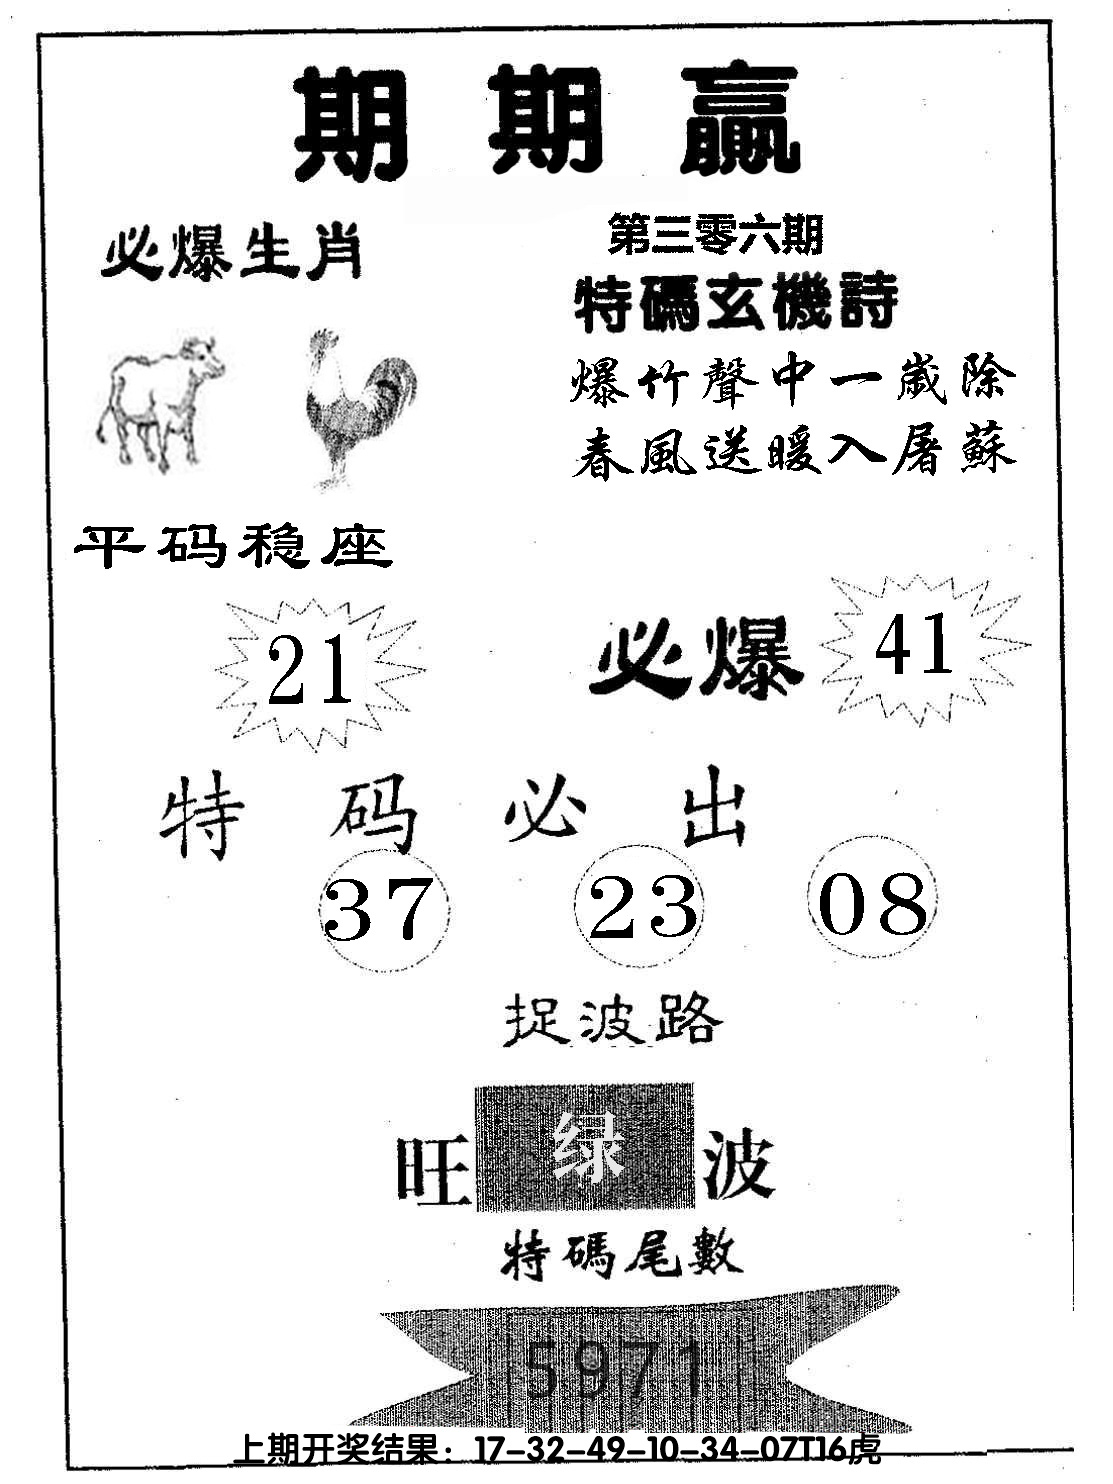 期期赢
必爆生肖
第三零六期
特碼玄機詩
爆竹聲中一歲除
春風送暖入屠蘇
平码稳座
21
必爆 41
特码必出
37 23 08
捉波路
旺 绿 波
特碼尾數
5971
上期开奖结果：17-32-49-10-34-07T16虎